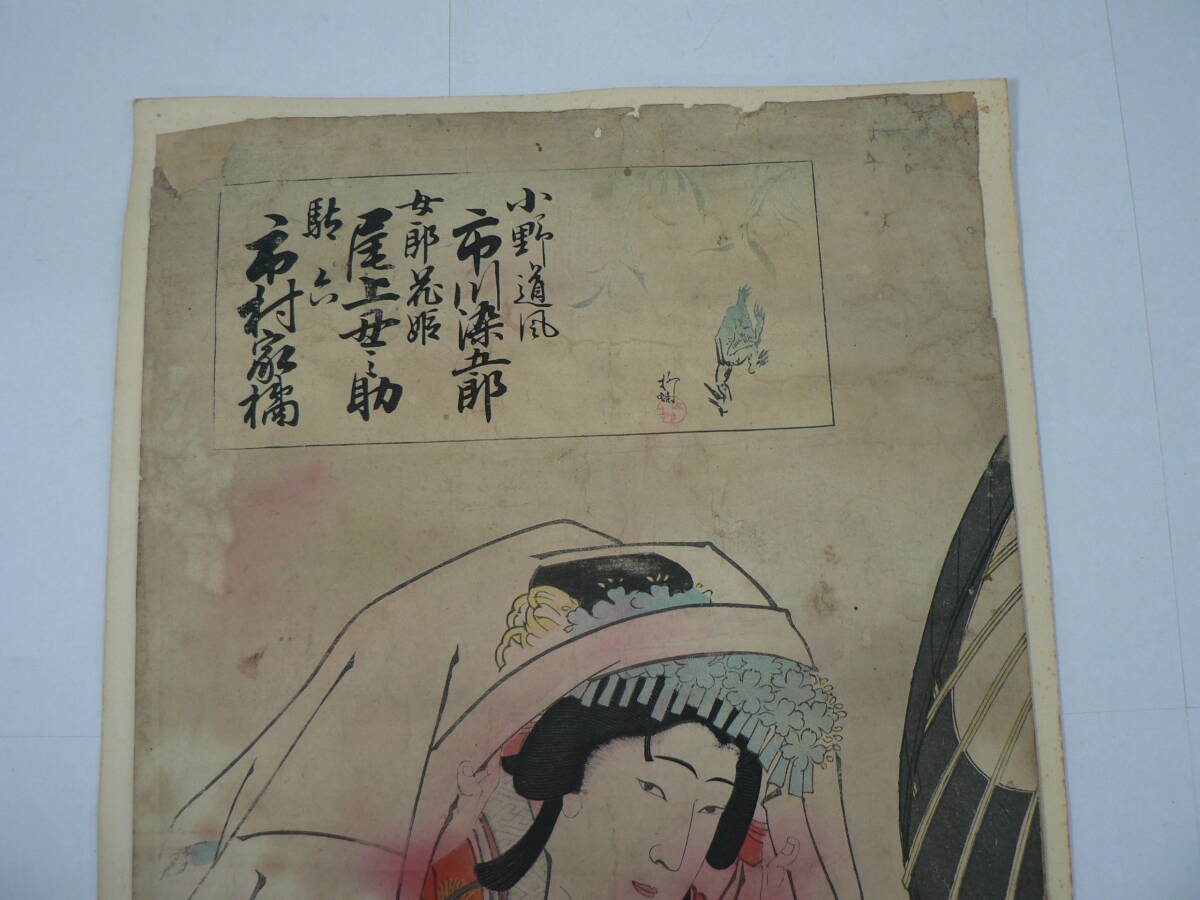 小野道風
市川染五郎
女郎花姫
尾上丑之助
駄六
市村家橘
柳蛙